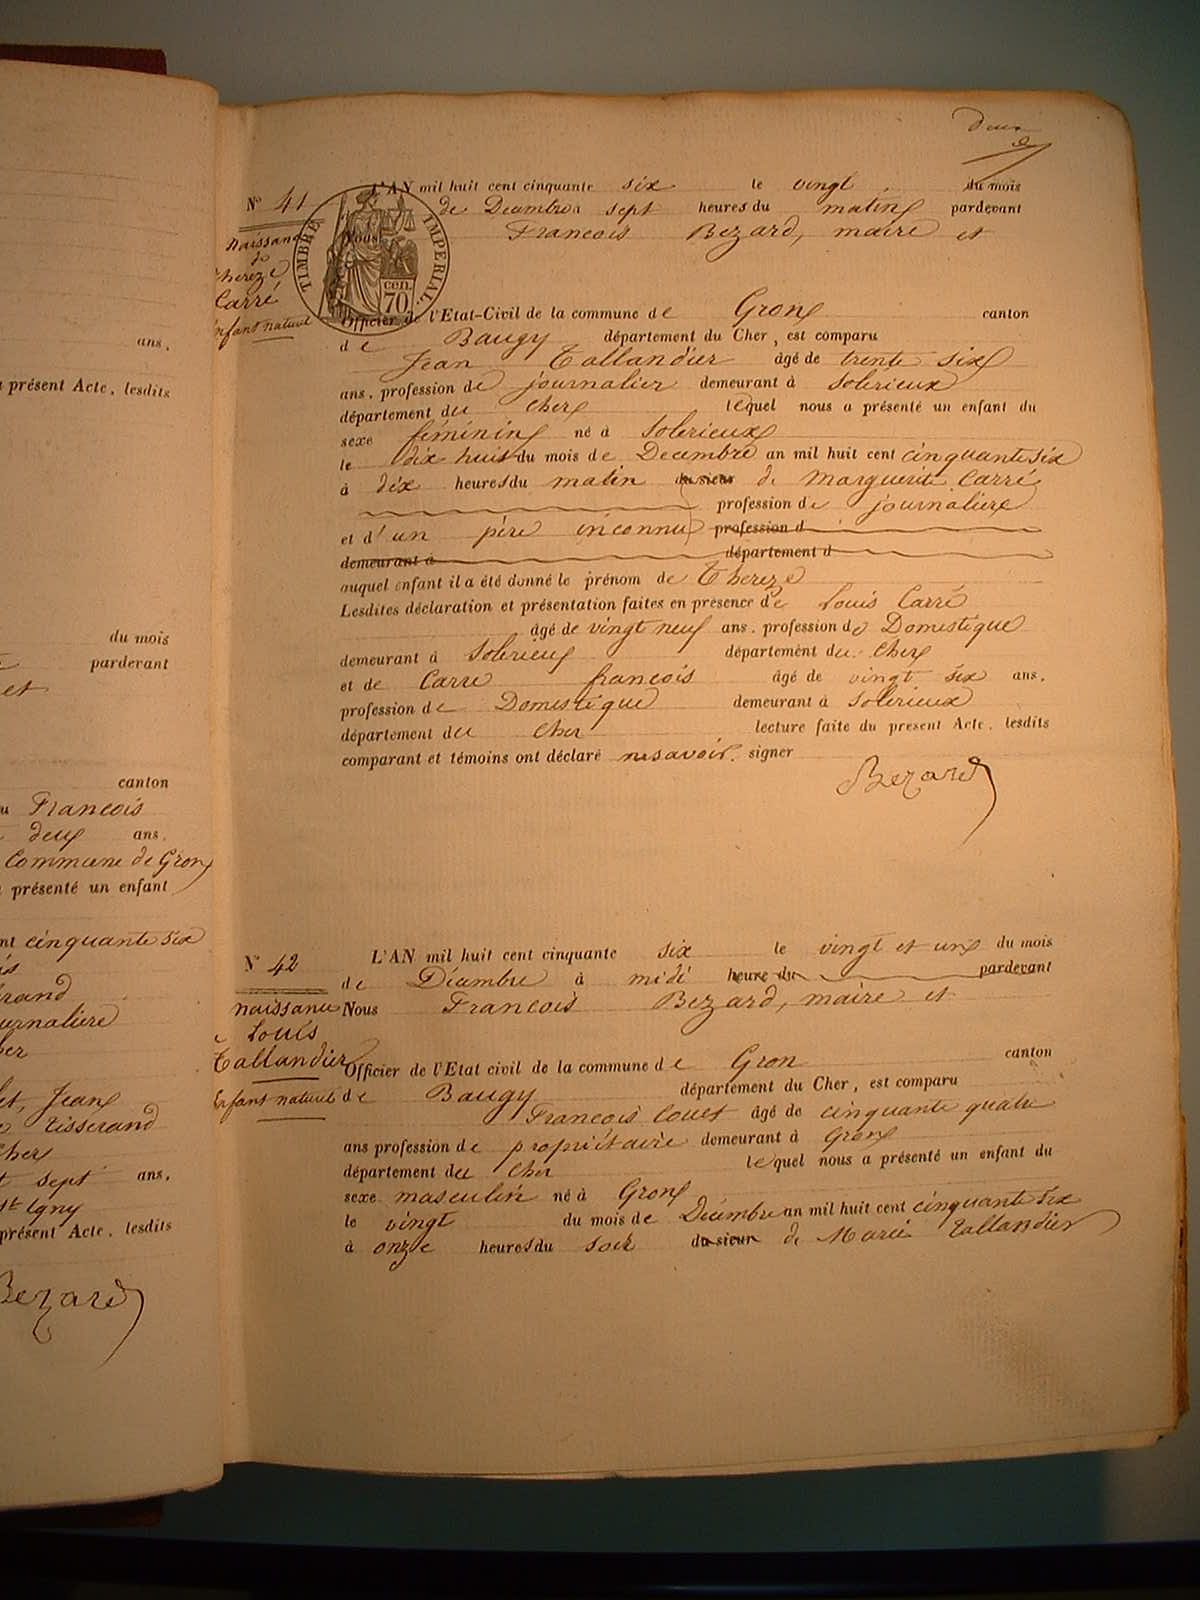 ans.
présent Acte, lesdits
du mois
pardevant
et
canton
François
deux ans.
Commune de Gron
présenté un enfant
cinquante six
journalière
Jean
tisserand
Cher
sept ans.
St Igny
présent Acte, lesdits
Bezard
N° 41
Naissance
de
Thereze
Carré
Enfant naturel
TIMBRE IMPERIAL
cen.
70
L'AN mil huit cent cinquante six le vingt du mois
de Decembre à sept heures du matin pardevant
Nous Francois Bezard, maire et
Officier de l'Etat-Civil de la commune de Gron canton
de Baugy département du Cher, est comparu
Jean Tallandier âgé de trente six
ans, profession de journalier demeurant à Solerieux
département du Cher lequel nous a présenté un enfant du
sexe féminin né à Solerieux
le dix huit du mois de Decembre an mil huit cent cinquante six
à dix heures du matin du sieur de Marguerite Carré
profession de journaliere
et d'un père inconnu profession d
demeurant à département d
auquel enfant il a été donné le prénom de Thereze
Lesdites déclaration et présentation faites en présence de Louis Carré
âgé de vingt neuf ans, profession de Domestique
demeurant à Solerieux département du Cher
et de Carre françois âgé de vingt six ans,
profession de Domestique demeurant à Solerieux
département du Cher lecture faite du present Acte, lesdits
comparant et témoins ont déclaré ne savoir signer
Bezard
N° 42
Naissance
Louis
Tallandier
Enfant naturel
L'AN mil huit cent cinquante six le vingt et un du mois
de Décembre à midi heure du pardevant
Nous Francois Bezard, maire et
Officier de l'Etat civil de la commune de Gron canton
de Baugy département du Cher, est comparu
François Couet âgé de cinquante quatre
ans profession de propriétaire demeurant à Gron
département du Cher lequel nous a présenté un enfant du
sexe masculin né à Gron
le vingt du mois de Décembre an mil huit cent cinquante six
à onze heures du soir du sieur de Marie Tallandier